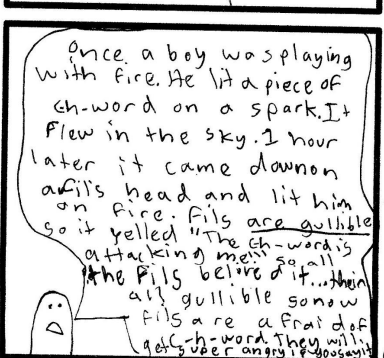 Once a boy was playing
with fire. He lit a piece of
ch-word on a spark. It
flew in the sky. 1 hour
later it came downon
a fil's head and lit him
on fire. Fils are gullible
so it yelled "The ch-word is
attacking me" so all
the Fils belived it...their
all gullible so now
fils are afraid of
C-h-word. They will
get super angry if you say it